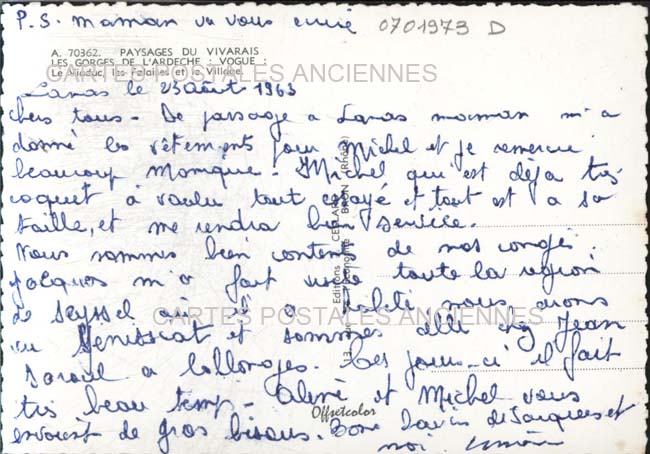 P.S. maman va vous écrire
0701973 D
A. 70362. PAYSAGES DU VIVARAIS
LES GORGES DE L'ARDECHE : VOGUE :
Le Viaduc, les Falaises et le Village.
CARTES POSTALES ANCIENNES
Lanas le 23 août 1963
chers tous - De passage a Lanas maman m'a
donné les vêtements pour Michel et je remercie
beaucoup Monique. Michel qui est déja très
coquet à voulu tout essayé et tout est a sa
taille, et me rendra bien service.
Nous sommes bien contents de nos congés.
Jacques m'a fait suivre toute la région
de Seyssel où il a nous avons
vu Genissiat et sommes allé chez Jean
a Collonges. Ces jours-ci il fait
très beau temp - et Michel vous
envoient de gros bisous. Bons de Jacques et
moi.
CARTES POSTALES ANCIENNES
Editions CELLARD
BRON (Rhône)
Offsetcolor